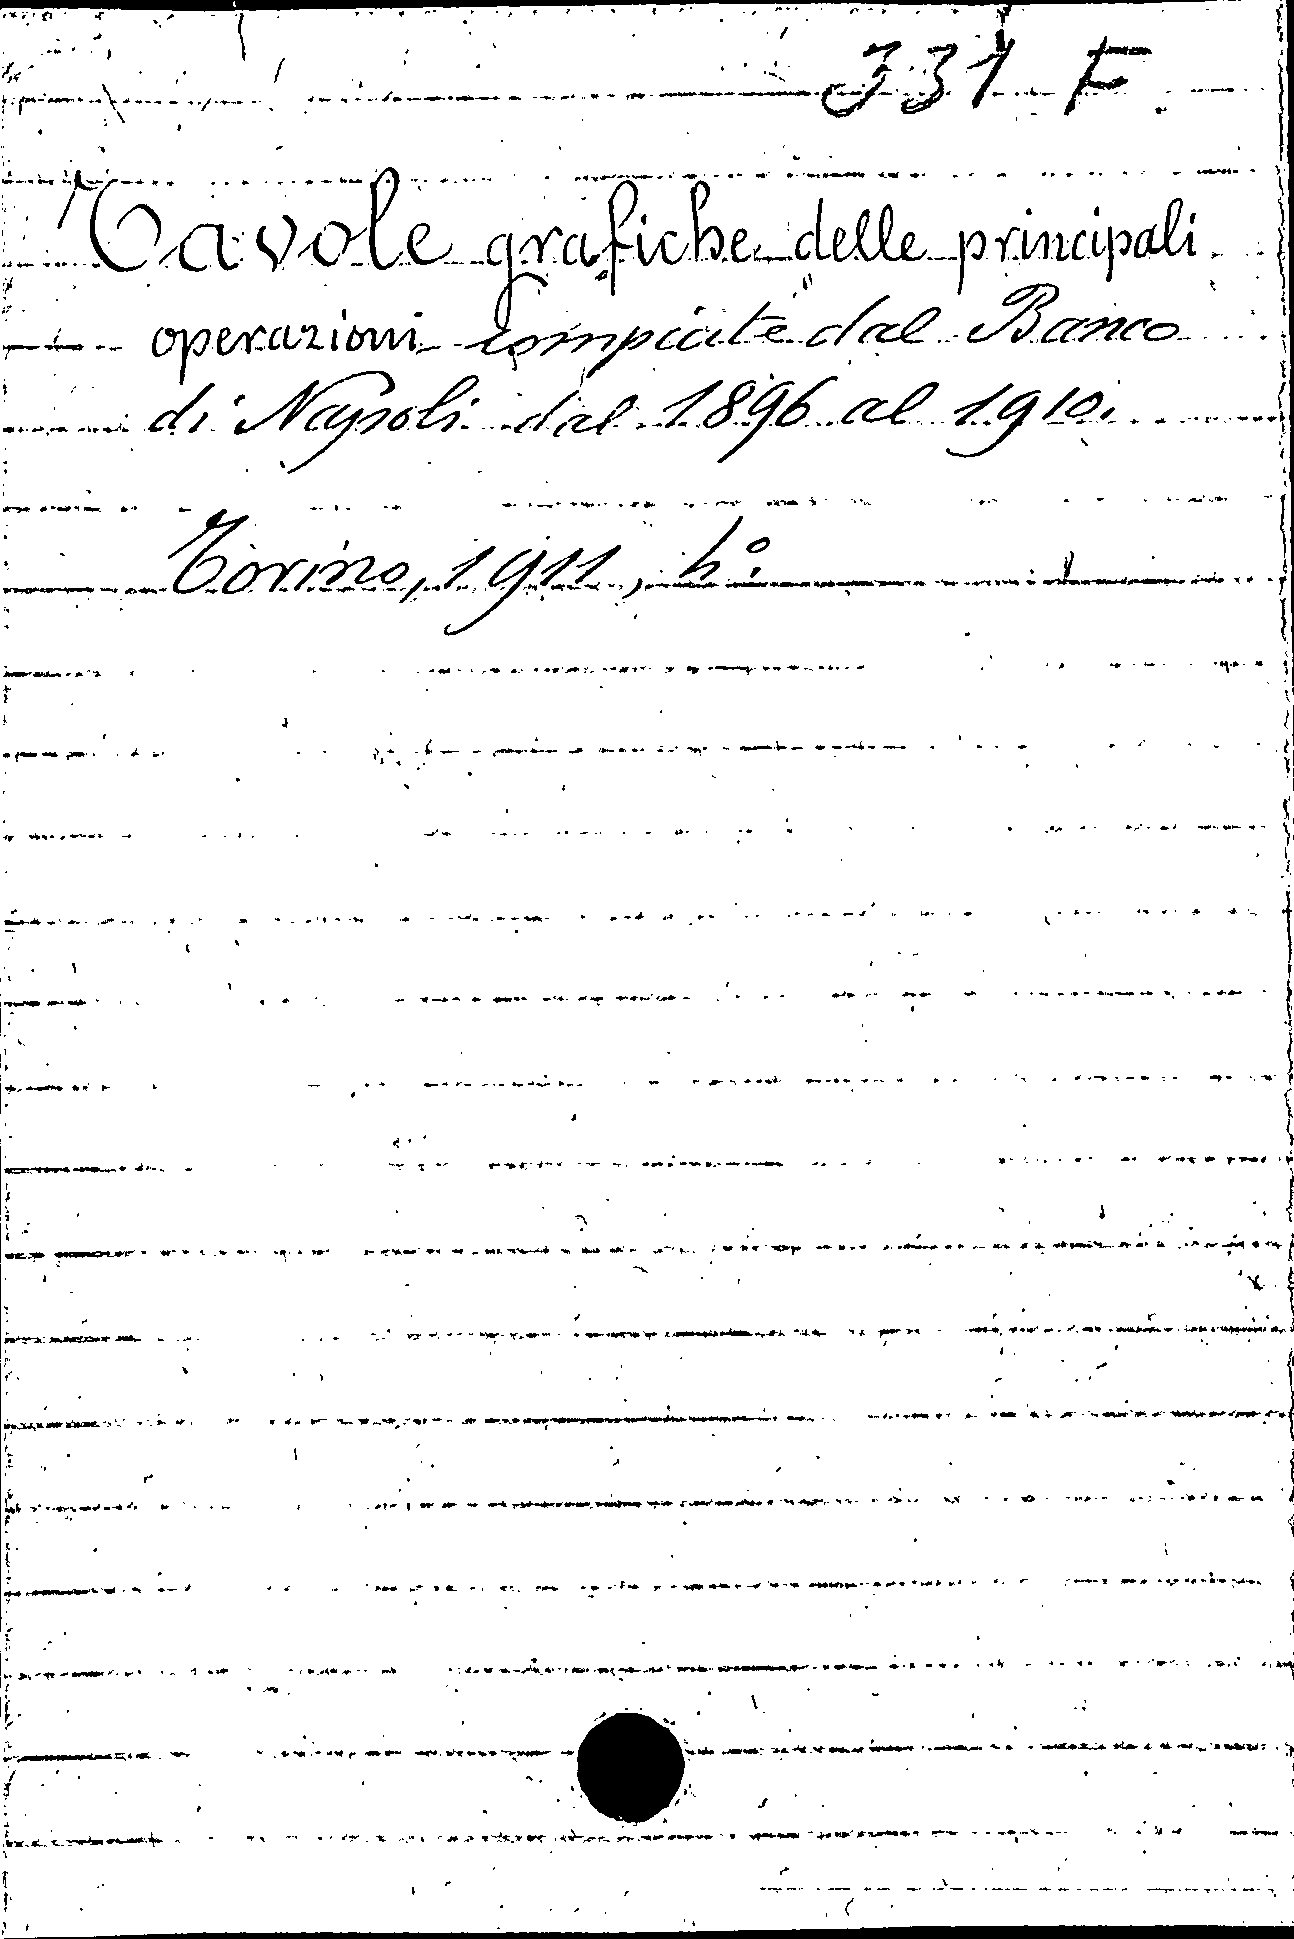 331 F
Tavole grafiche delle principali
operazioni compiute dal Banco
di Napoli dal 1896 al 1910.
Torino, 1911, 4°.